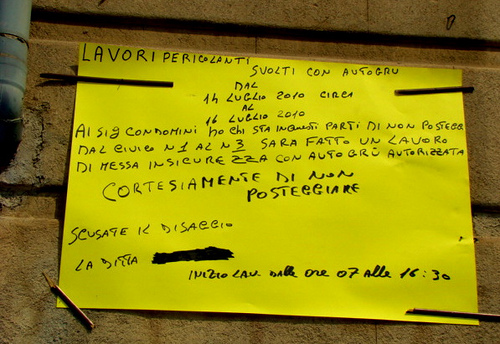 LAVORI PERICOLANTI
SVOLTI CON AUTOGRU
DAL
14 LUGLIO 2010 CIRCA
AL
16 LUGLIO 2010
AI SIG CONDOMINI HO CHI STA IN QUESTI PARTI DI NON POSTEGG
DAL CIVICO N1 AL N3 SARA FATTO UN LAVORO
DI MESSA INSICUREZZA CON AUTOGRÙ AUTORIZZATA
CORTESIAMENTE DI NON
POSTEGGIARE
SCUSATE IL DISAGGIO
LA DITTA
INIZIO LAV. DALLE ORE 07 ALLE 16:30